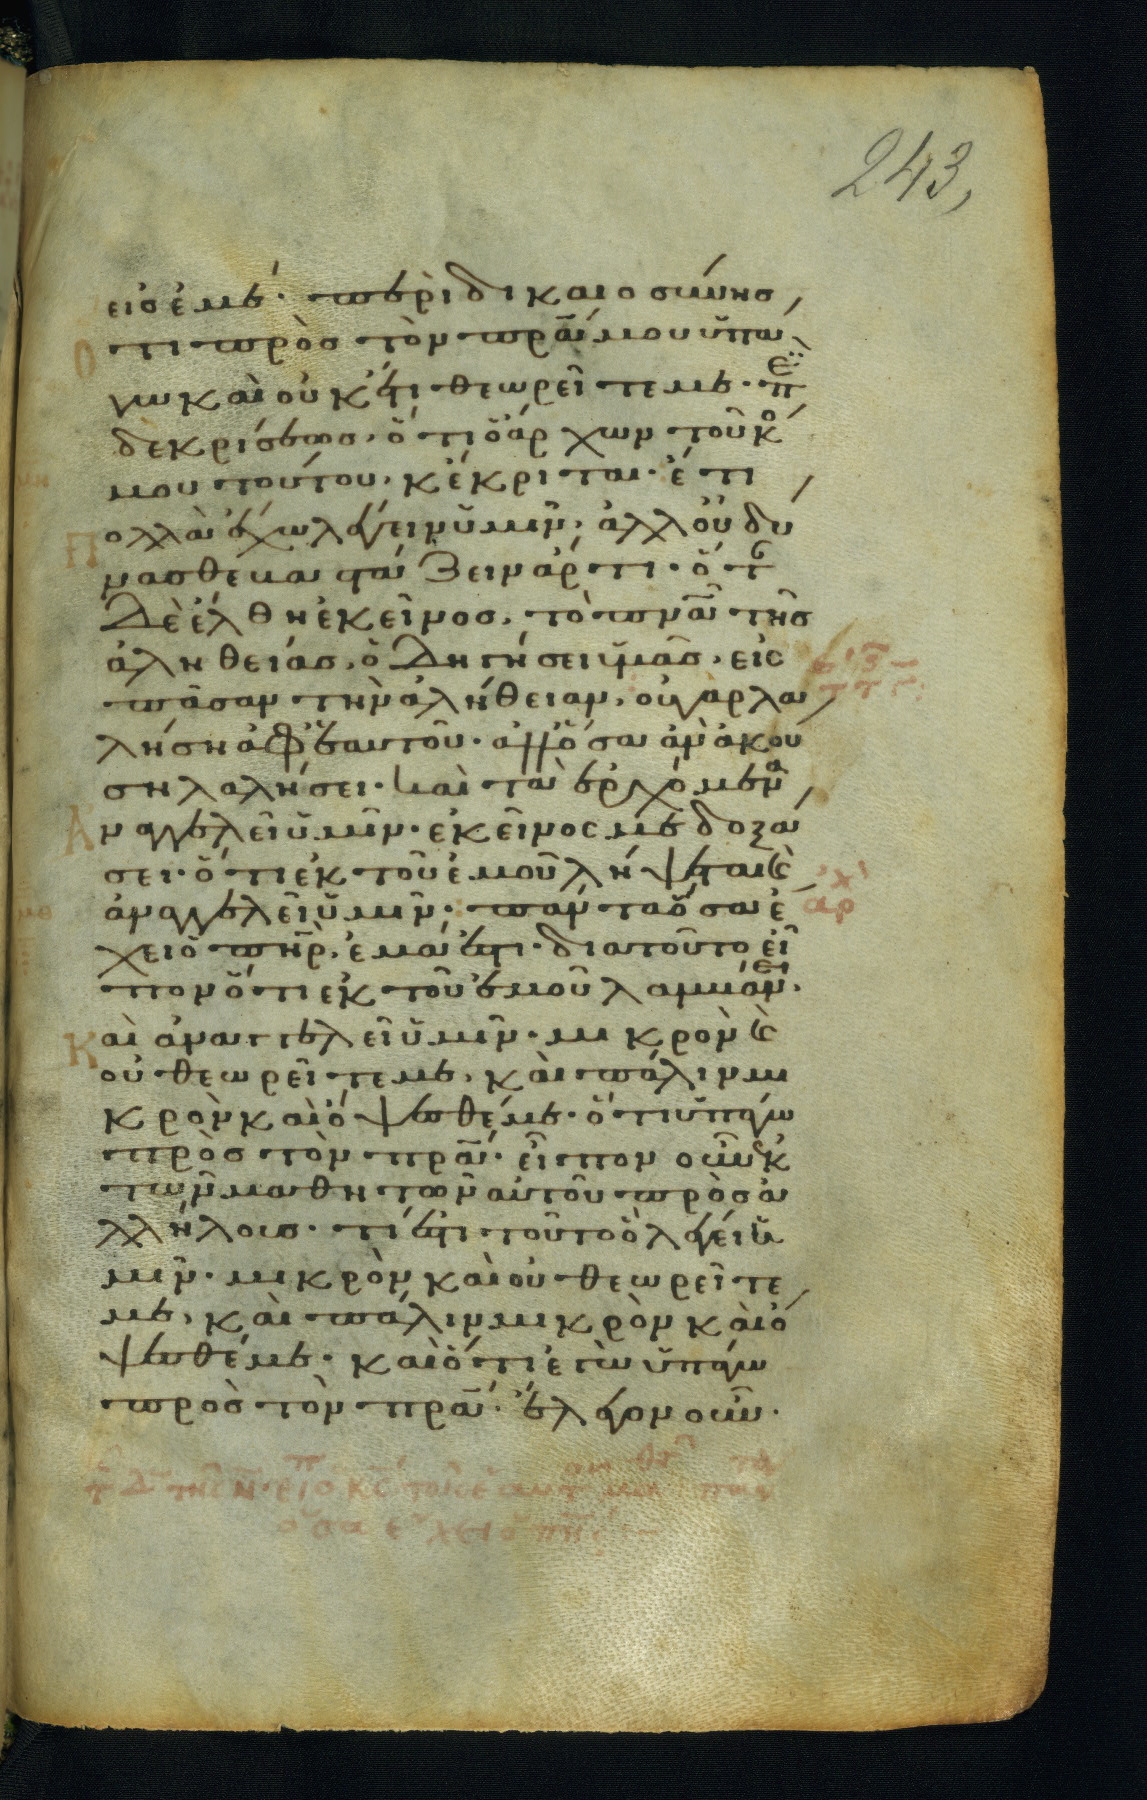 243,
εἰς ἐμέ· περὶ δικαιοσύνης
Ὅτι πρὸς τὸν πρ̅α̅ μου ὑπά
γω καὶ οὐκ ἔτι θεωρεῖτέ με· πε
δὲ κρίσεως, ὅτι ὁ ἄρχων τοῦ κο
μου τούτου, κέκριται· ἔτι
Πολλὰ ἔχω λέγειν ὑμῖν, ἀλλ' οὐ δύ
νασθε βαστάζειν ἄρτι· ὅτ
δὲ ἔλθη ἐκεῖνος, τὸ πν̅α̅ τῆς
ἀληθείας, ὁδηγήσει ὑμᾶς, εἰς
πᾶσαν τὴν ἀλήθειαν, οὐ γὰρ λα
λήση ἀφ' ἑαυτοῦ· ἀλλ' ὅσα ἂν ἀκού
ση λαλήσει· καὶ τὰ ἐρχόμενα
Ἀναγγελεῖ ὑμῖν· ἐκεῖνος με δοξά
σει· ὅτι ἐκ τοῦ ἐμοῦ λήψεται ϗ
ἀναγγελεῖ ὑμῖν· πάντα ὅσα ἔ
χει ὁ πη̅ρ̅, ἐμά ἐστι· διατοῦτο εἶ
πον ὅτι ἐκ τοῦ ἐμοῦ λαμβάνει·
Καὶ ἀναγγελεῖ ὑμῖν· μικρὸν ϗ
οὐ θεωρεῖτέ με, καὶ πάλιν μι
κρὸν καὶ ὄψεσθέ με· ὅτι ὑπάγω
πρὸς τὸν πρ̅α̅· εἶπον οὖν ἐκ
τῶν μαθητῶν αὐτοῦ πρὸς ἀ
λλήλοις· τί ἐστι τοῦτο ὃ λέγει ὑ
μῖν· μικρὸν καὶ οὐ θεωρεῖτέ
με, καὶ πάλιν μικρὸν καὶ ὄ
ψεσθέ με· καὶ ὅτι ἐγὼ ὑπάγω
πρὸς τὸν πρ̅α̅· ἔλεγον οὖν·
ὅσα ἔχει ὁ πη̅ρ̅